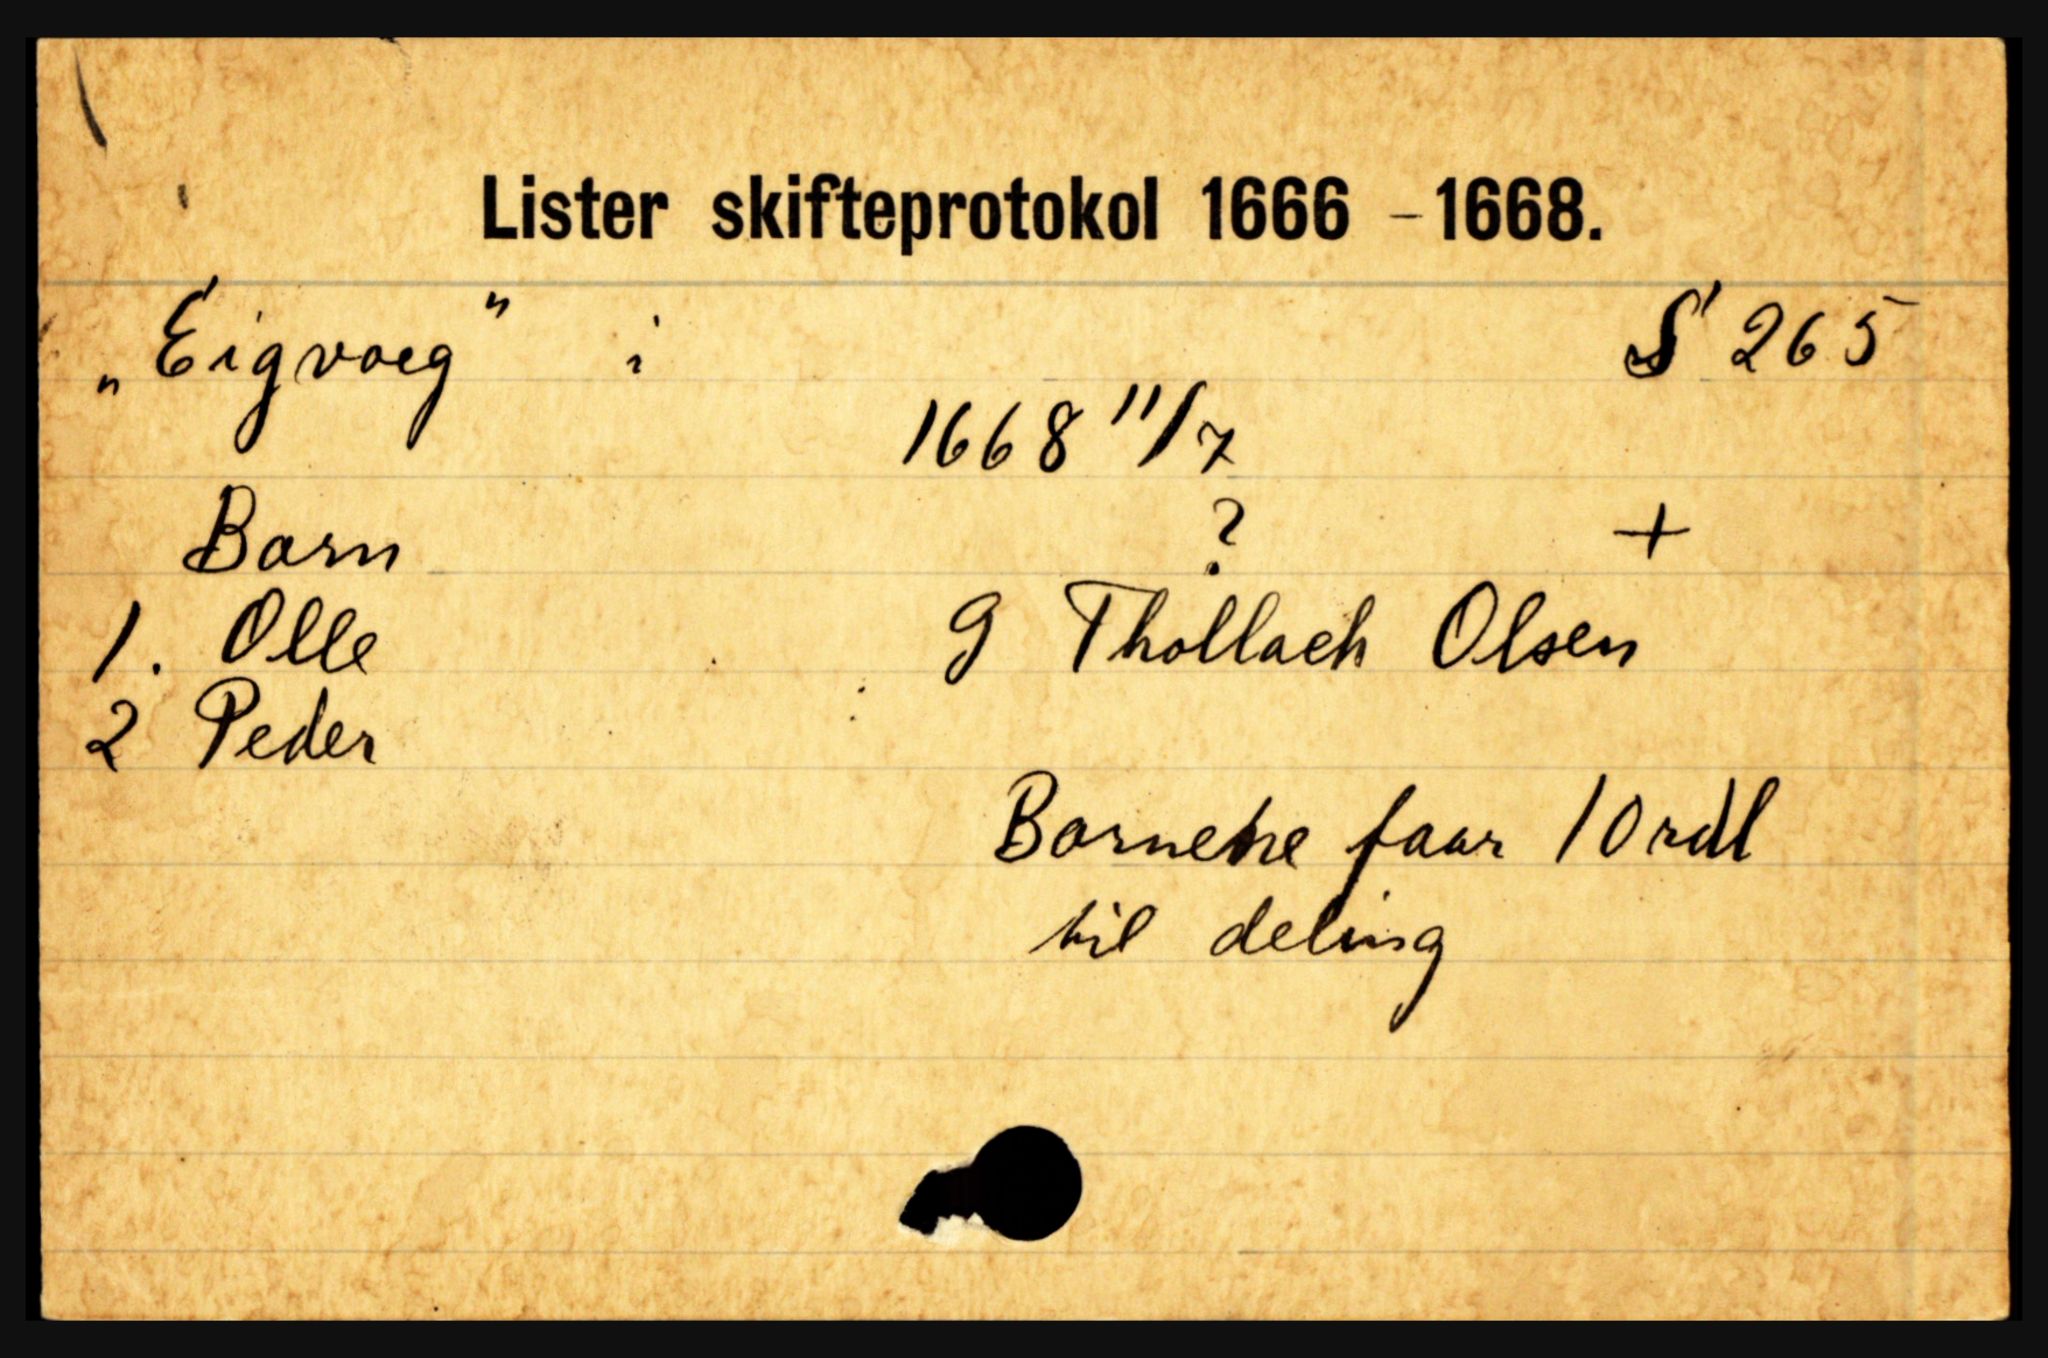 Lister skifteprotokol 1666 - 1668.
„Eigvaag" i S 265
1668 11/7
Barn ? +
1. Olle g Thollach Olsen
2 Peder
Barnene faar 10 rdl
til deling